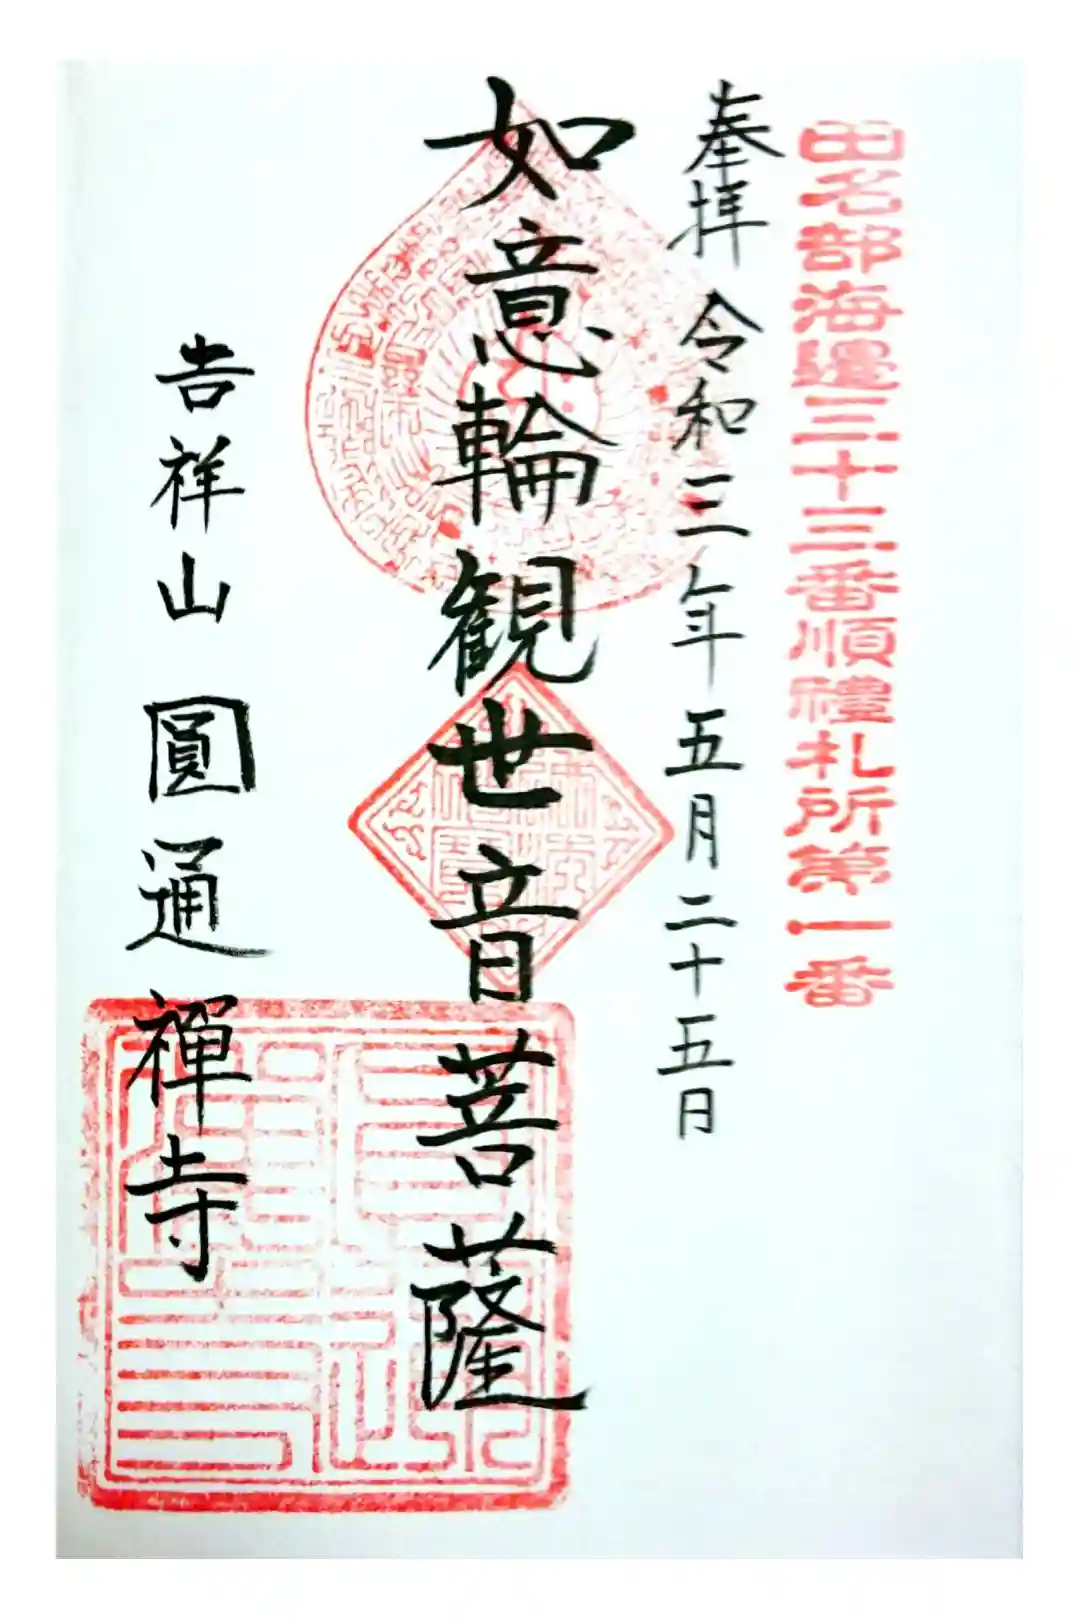 田名部海邊三十三番順禮札所第一番
奉拝 令和三年五月二十五日
如意輪観世音菩薩
吉祥山 圓通禅寺